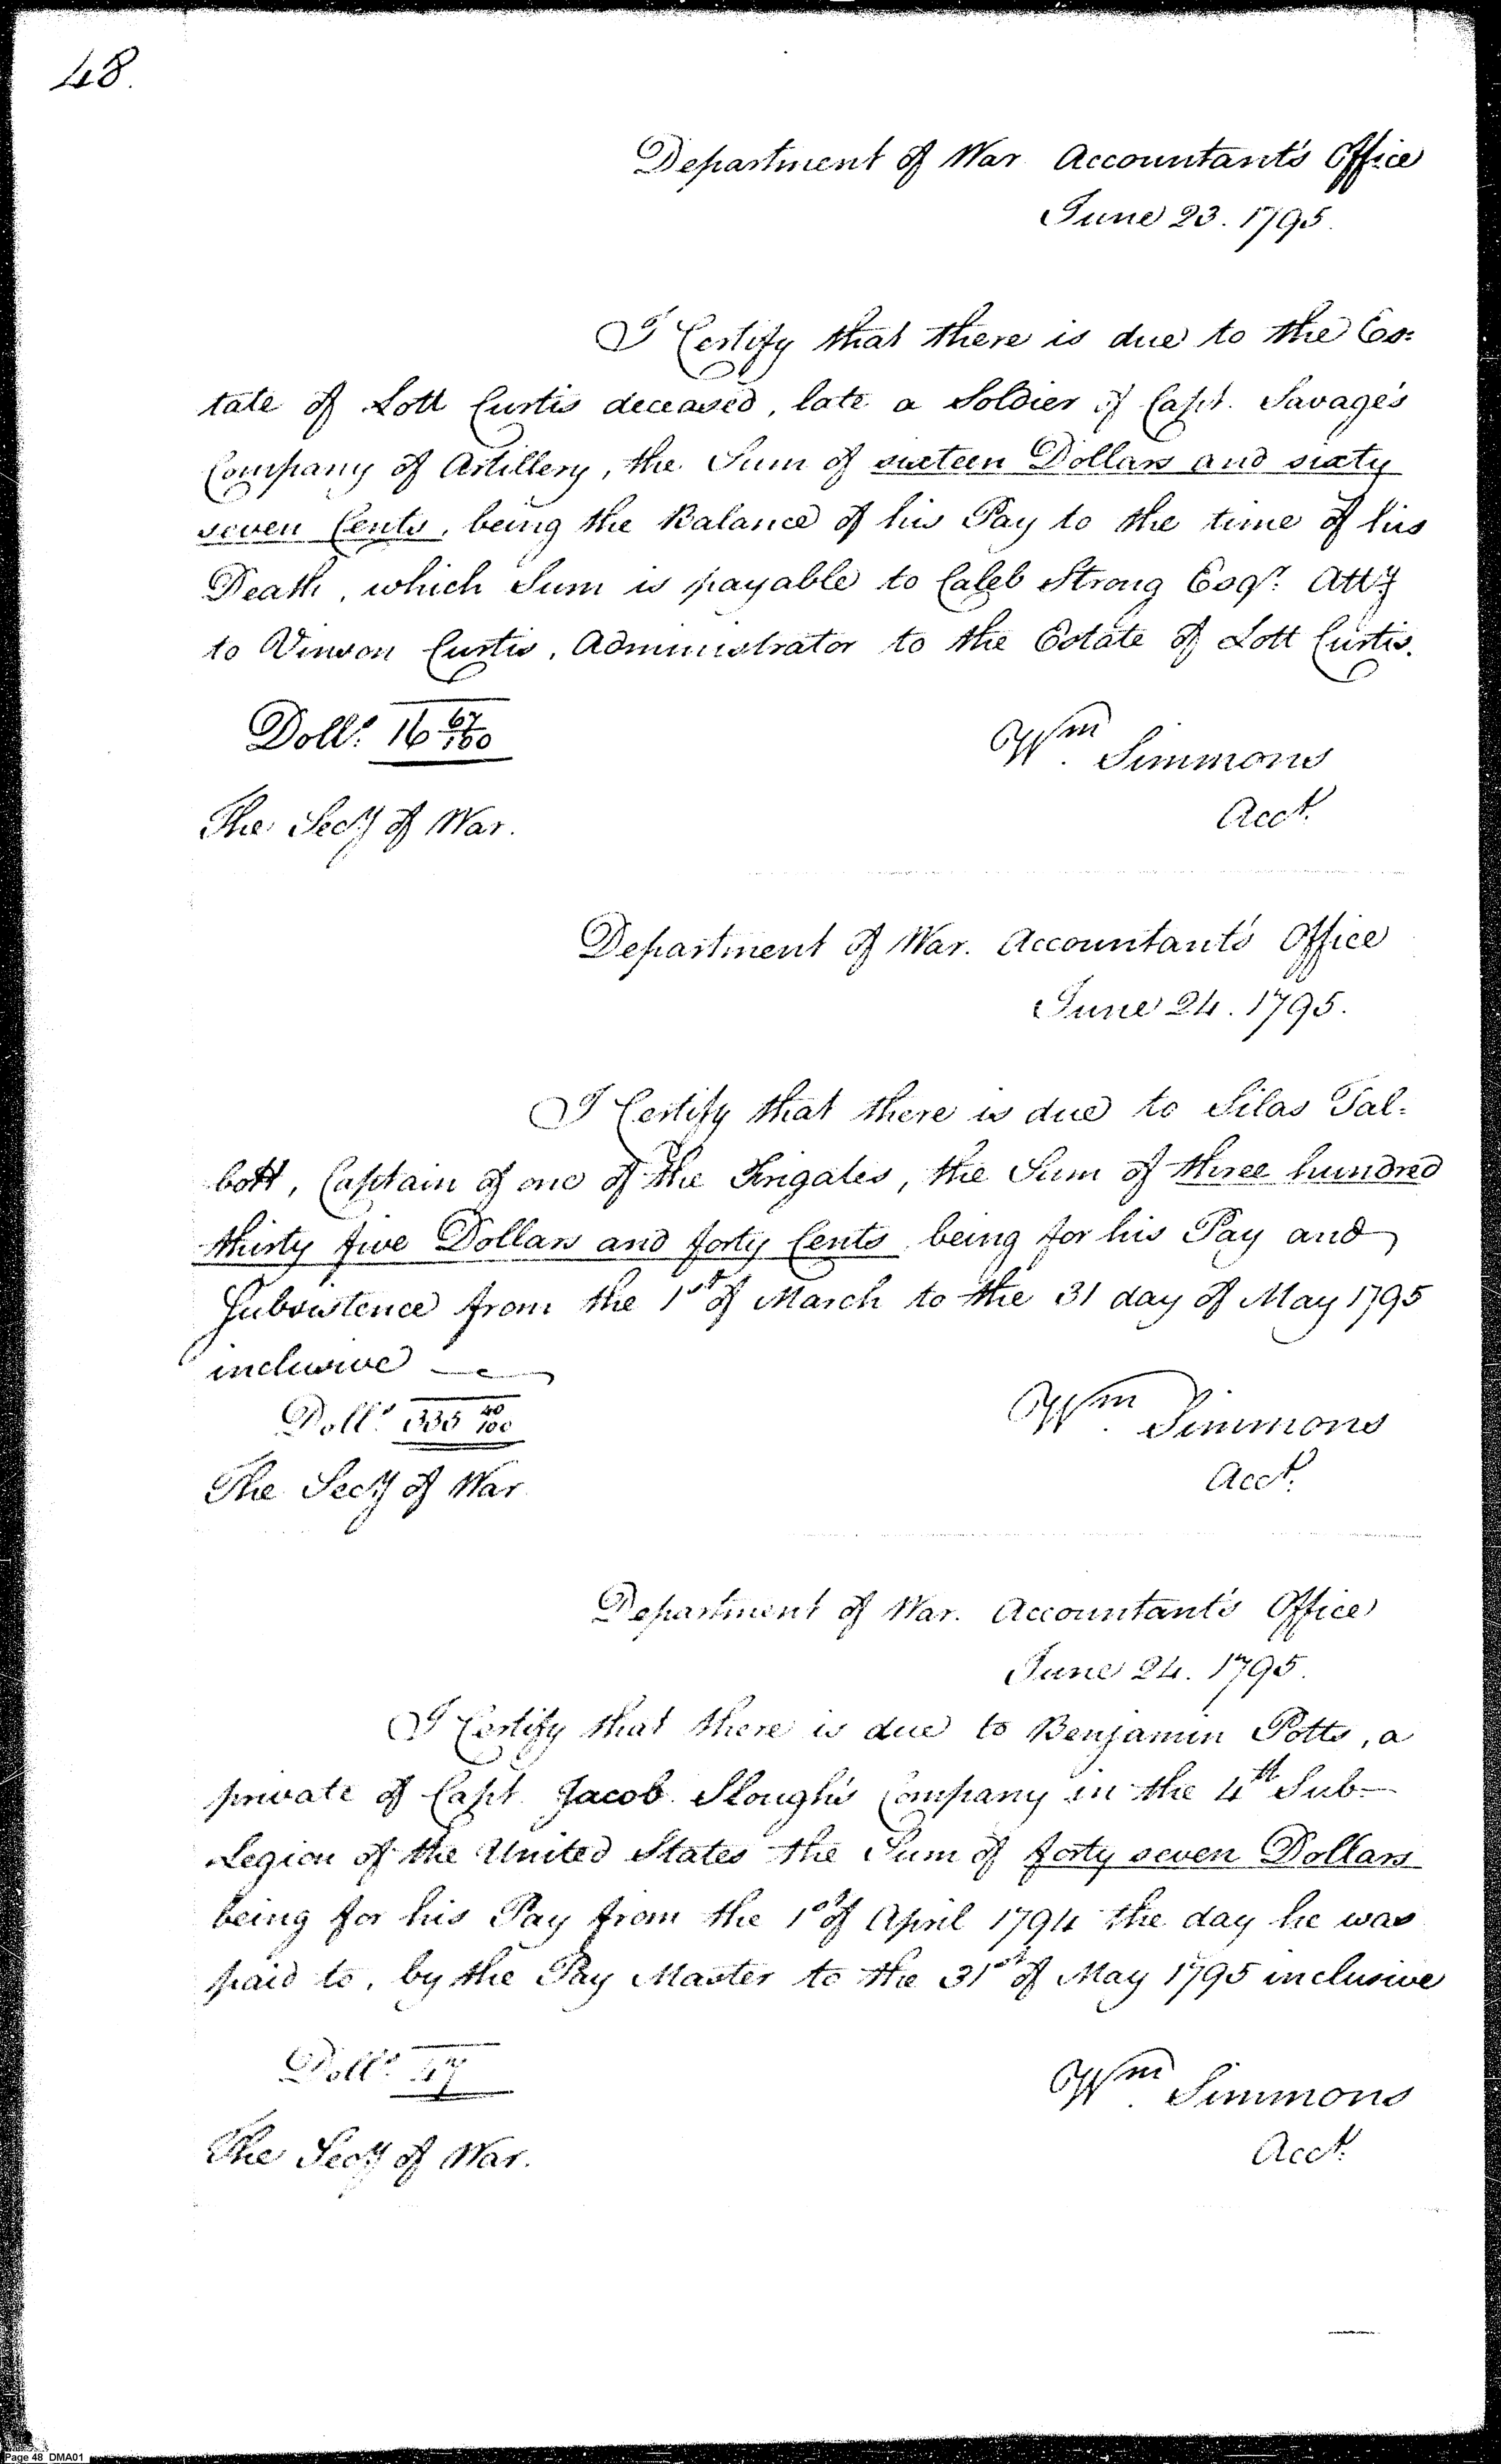 48.
Department of War Accountant's Office
June 23. 1795.
I Certify that there is due to the Es=
tate of Lott Curtis deceased, late a Soldier of Capt. Savage's
Company of Artillery, the Sum of sixteen Dollars and sixty
seven Cents, being the Balance of his Pay to the time of his
Death, which Sum is payable to Caleb Strong Esqr. Atty
to Vinson Curtis, Administrator to the Estate of Lott Curtis.
Dolls. 16 67/100
Wm. Simmons
The Secy of War.
Acct.
Department of War. Accountant's Office
June 24. 1795.
I Certify that there is due to Silas Tal=
bott, Captain of one of the Frigates, the Sum of three hundred
thirty five Dollars and forty Cents being for his Pay and
Subsistence from the 1st of March to the 31 day of May 1795
inclusive
Dolls. 335 40/100
Wm. Simmons
The Secy of War
Acct.
Department of War. Accountant's Office
June 24. 1795.
I Certify that there is due to Benjamin Potts, a
private of Capt. Jacob Slough's Company in the 4th Sub-
Legion of the United States the Sum of forty seven Dollars
being for his Pay from the 1st of April 1794 the day he was
paid to, by the Pay Master to the 31st of May 1795 inclusive
Dolls. 47
Wm. Simmons
The Secy of War.
Acct.
Page 48 DMA01